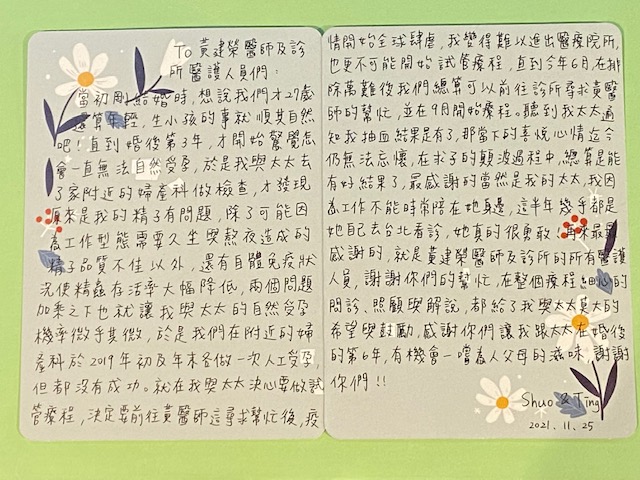 To 黃建榮醫師及診
所醫護人員們：
當初剛結婚時，想說我們才27歲
還算年輕，生小孩的事就順其自然
吧！直到婚後第3年，才開始驚覺怎
會一直無法自然受孕，於是我與太太去
了家附近的婦產科做檢查，才發現
原來是我的精子有問題，除了可能因
為工作型態需要久坐與熬夜造成的
精子品質不佳以外，還有自體免疫狀
況使精蟲存活率大幅降低，兩個問題
加乘之下也就讓我與太太的自然受孕
機率微乎其微，於是我們在附近的婦
產科於2019年初及年末各做一次人工受孕，
但都沒有成功。就在我與太太決心要做試
管療程，決定要前往黃醫師這尋求幫忙後，疫
情開始全球肆虐，我變得難以進出醫療院所，
也更不可能開始試管療程，直到今年6月，在排
除萬難後我們總算可以前往診所尋求黃醫
師的幫忙，並在9月開始療程。聽到我太太通
知我抽血結果是有了，那當下的喜悅心情迄今
仍無法忘懷，在求子的顛波過程中，總算是能
有好結果了，最感謝的當然是我的太太，我因
為工作不能時常陪在她身邊，這半年幾乎都是
她自己去台北看診，她真的很勇敢！再來最最
感謝的，就是黃建榮醫師及診所的所有醫護
人員，謝謝你們的幫忙，在整個療程細心的
問診、照顧與解說，都給了我與太太莫大的
希望與鼓勵，感謝你們讓我跟太太在婚後
的第6年，有機會一嚐為人父母的滋味，謝謝
你們！！
Shuo & Ting
2021.11.25